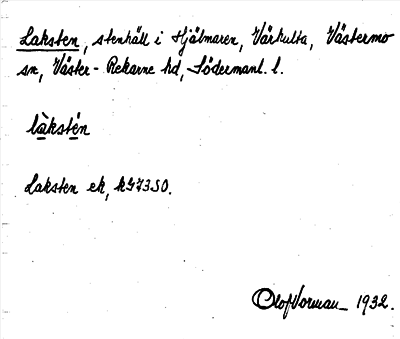 Laksten, stenhäll i Hjälmaren, Vårhulta, Västermo
sn, Väster-Rekarne hd, Södermanl. l.
làkstén
Laksten ek, kG73SO.
Olof Vorman 1932.